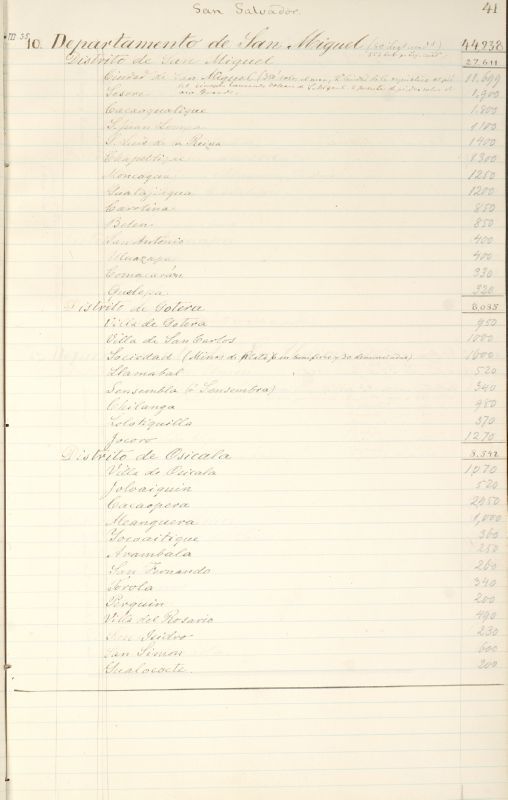 San Salvador.
41
10. Departamento de San Miguel 44.238
Distrito de San Miguel 27.611
Ciudad de San Miguel 11.699
Sesori 1,900
Cacaoguatique 1.800
1.100
S. Luis de la Reina 1400
Chapeltique 1300
Moncagua 1250
Guatajiagua 1200
Carolina 850
Belen 850
San Antonio 400
Uluazapa 400
Comacarán 330
Quelepa 320
Distrito de Gotera 6,085
Villa de Gotera 950
Villa de San Carlos 1000
Sociedad (Minas de Plata, 1600
Llamabal 520
Sensembla (ó Sensembra) 340
Chilanga 980
Lolotiquilla 370
Jocoro 1270
Distrito de Osicala
Villa de Osicala 1,070
Joloaiquin 520
Cacaopera
Meanguera 1,000
Jocoaitique 360
Arambala 250
San Fernando 260
Torola 340
Perquin 200
Villa del Rosario 490
San Isidro 230
San Simon 600
Gualococti. 200